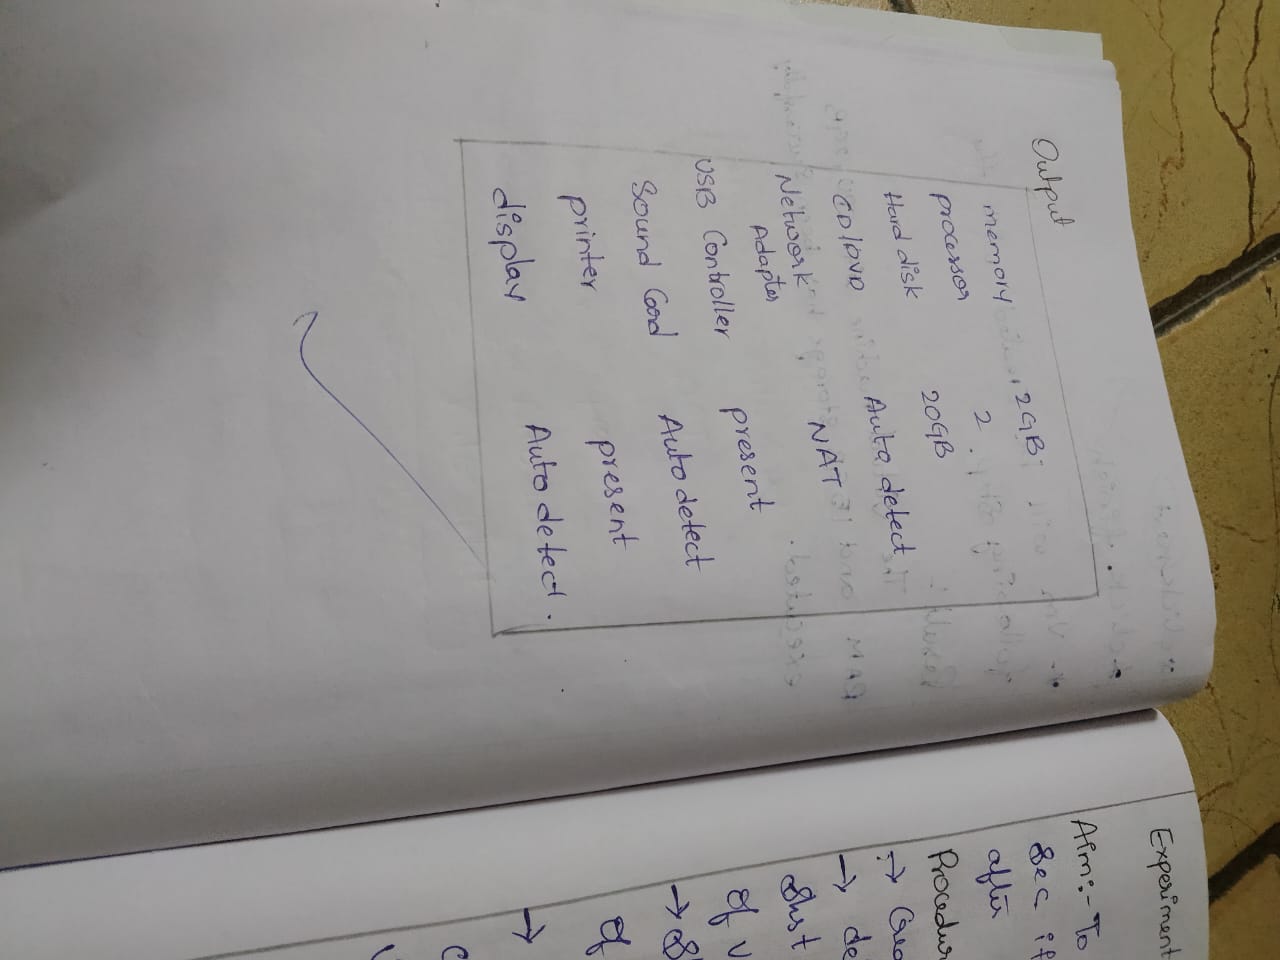 Output
memory 2GB.
processor 2.
Hard disk 20GB
CD/DVD Auto detect
Network NAT
Adapter
USB Controller present
Sound Card Auto detect
printer present
display Auto detect.
Experiment
Aim:- To
Sec if
after
Procedur
→ Crea
→ de
of v
→ S
of
→